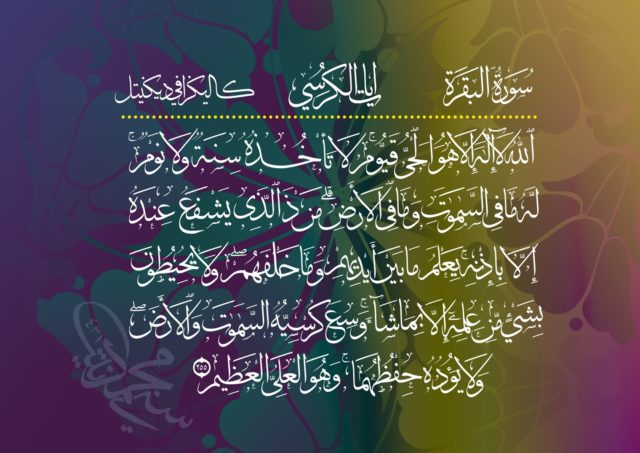 سُورَةُ البَقَرَة ايات الكرسي كاليݢرافي ديݢيتل
اللّٰهُ لَآ إِلٰهَ إِلَّا هُوَ الْحَيُّ قَيُّومُ ۚ لَا تَأْخُذُهُ سِنَةٌ وَلَا نَوْمٌ ۚ
لَهُ مَا فِى السَّمٰوٰتِ وَمَا فِى الْأَرْضِ ۗ مَنْ ذَا الَّذِى يَشْفَعُ عِنْدَهُ
إِلَّا بِإِذْنِهِ ۚ يَعْلَمُ مَا بَيْنَ أَيْدِيهِمْ وَمَا خَلْفَهُمْ ۖ وَلَا يُحِيطُونَ
بِشَيْءٍ مِّنْ عِلْمِهِ إِلَّا بِمَا شَآءَ ۚ وَسِعَ كُرْسِيُّهُ السَّمٰوٰتِ وَالْأَرْضَ ۖ
وَلَا يَـُٔودُهُ حِفْظُهُمَا ۚ وَهُوَ الْعَلِىُّ الْعَظِيمُ ٢٥٥